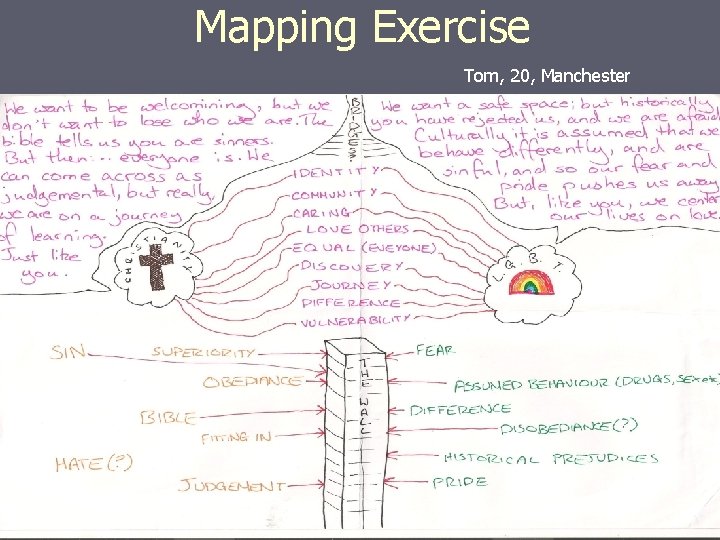 Mapping Exercise
Tom, 20, Manchester
We want to be welcomining, but we
don't want to lose who we are. The
bible tells us you are sinners.
But then... everyone is. We
can come across as
judgemental, but really
we are on a journey
of learning.
Just like
you.
BRIDGES
We want a safe space; but historically
you have rejected us, and we are afraid
Culturally it is assumed that we
behave differently, and are
sinful, and so our fear and
pride pushes us away
But, like you, we center
our lives on love.
IDENTITY
COMMUNITY
CARING
LOVE OTHERS
EQUAL (EVEYONE)
DISCOVERY
JOURNEY
DIFFERENCE
VULNERABILITY
CHRISTIANITY
L.G.B.T
THE WALL
SIN
SUPERIORITY
OBEDIANCE
BIBLE
FITTING IN
HATE (?)
JUDGEMENT
FEAR
ASSUMED BEHAVIOUR (DRUGS, SEX etc)
DIFFERENCE
DISOBEDIANCE (?)
HISTORICAL PREJUDICES
PRIDE